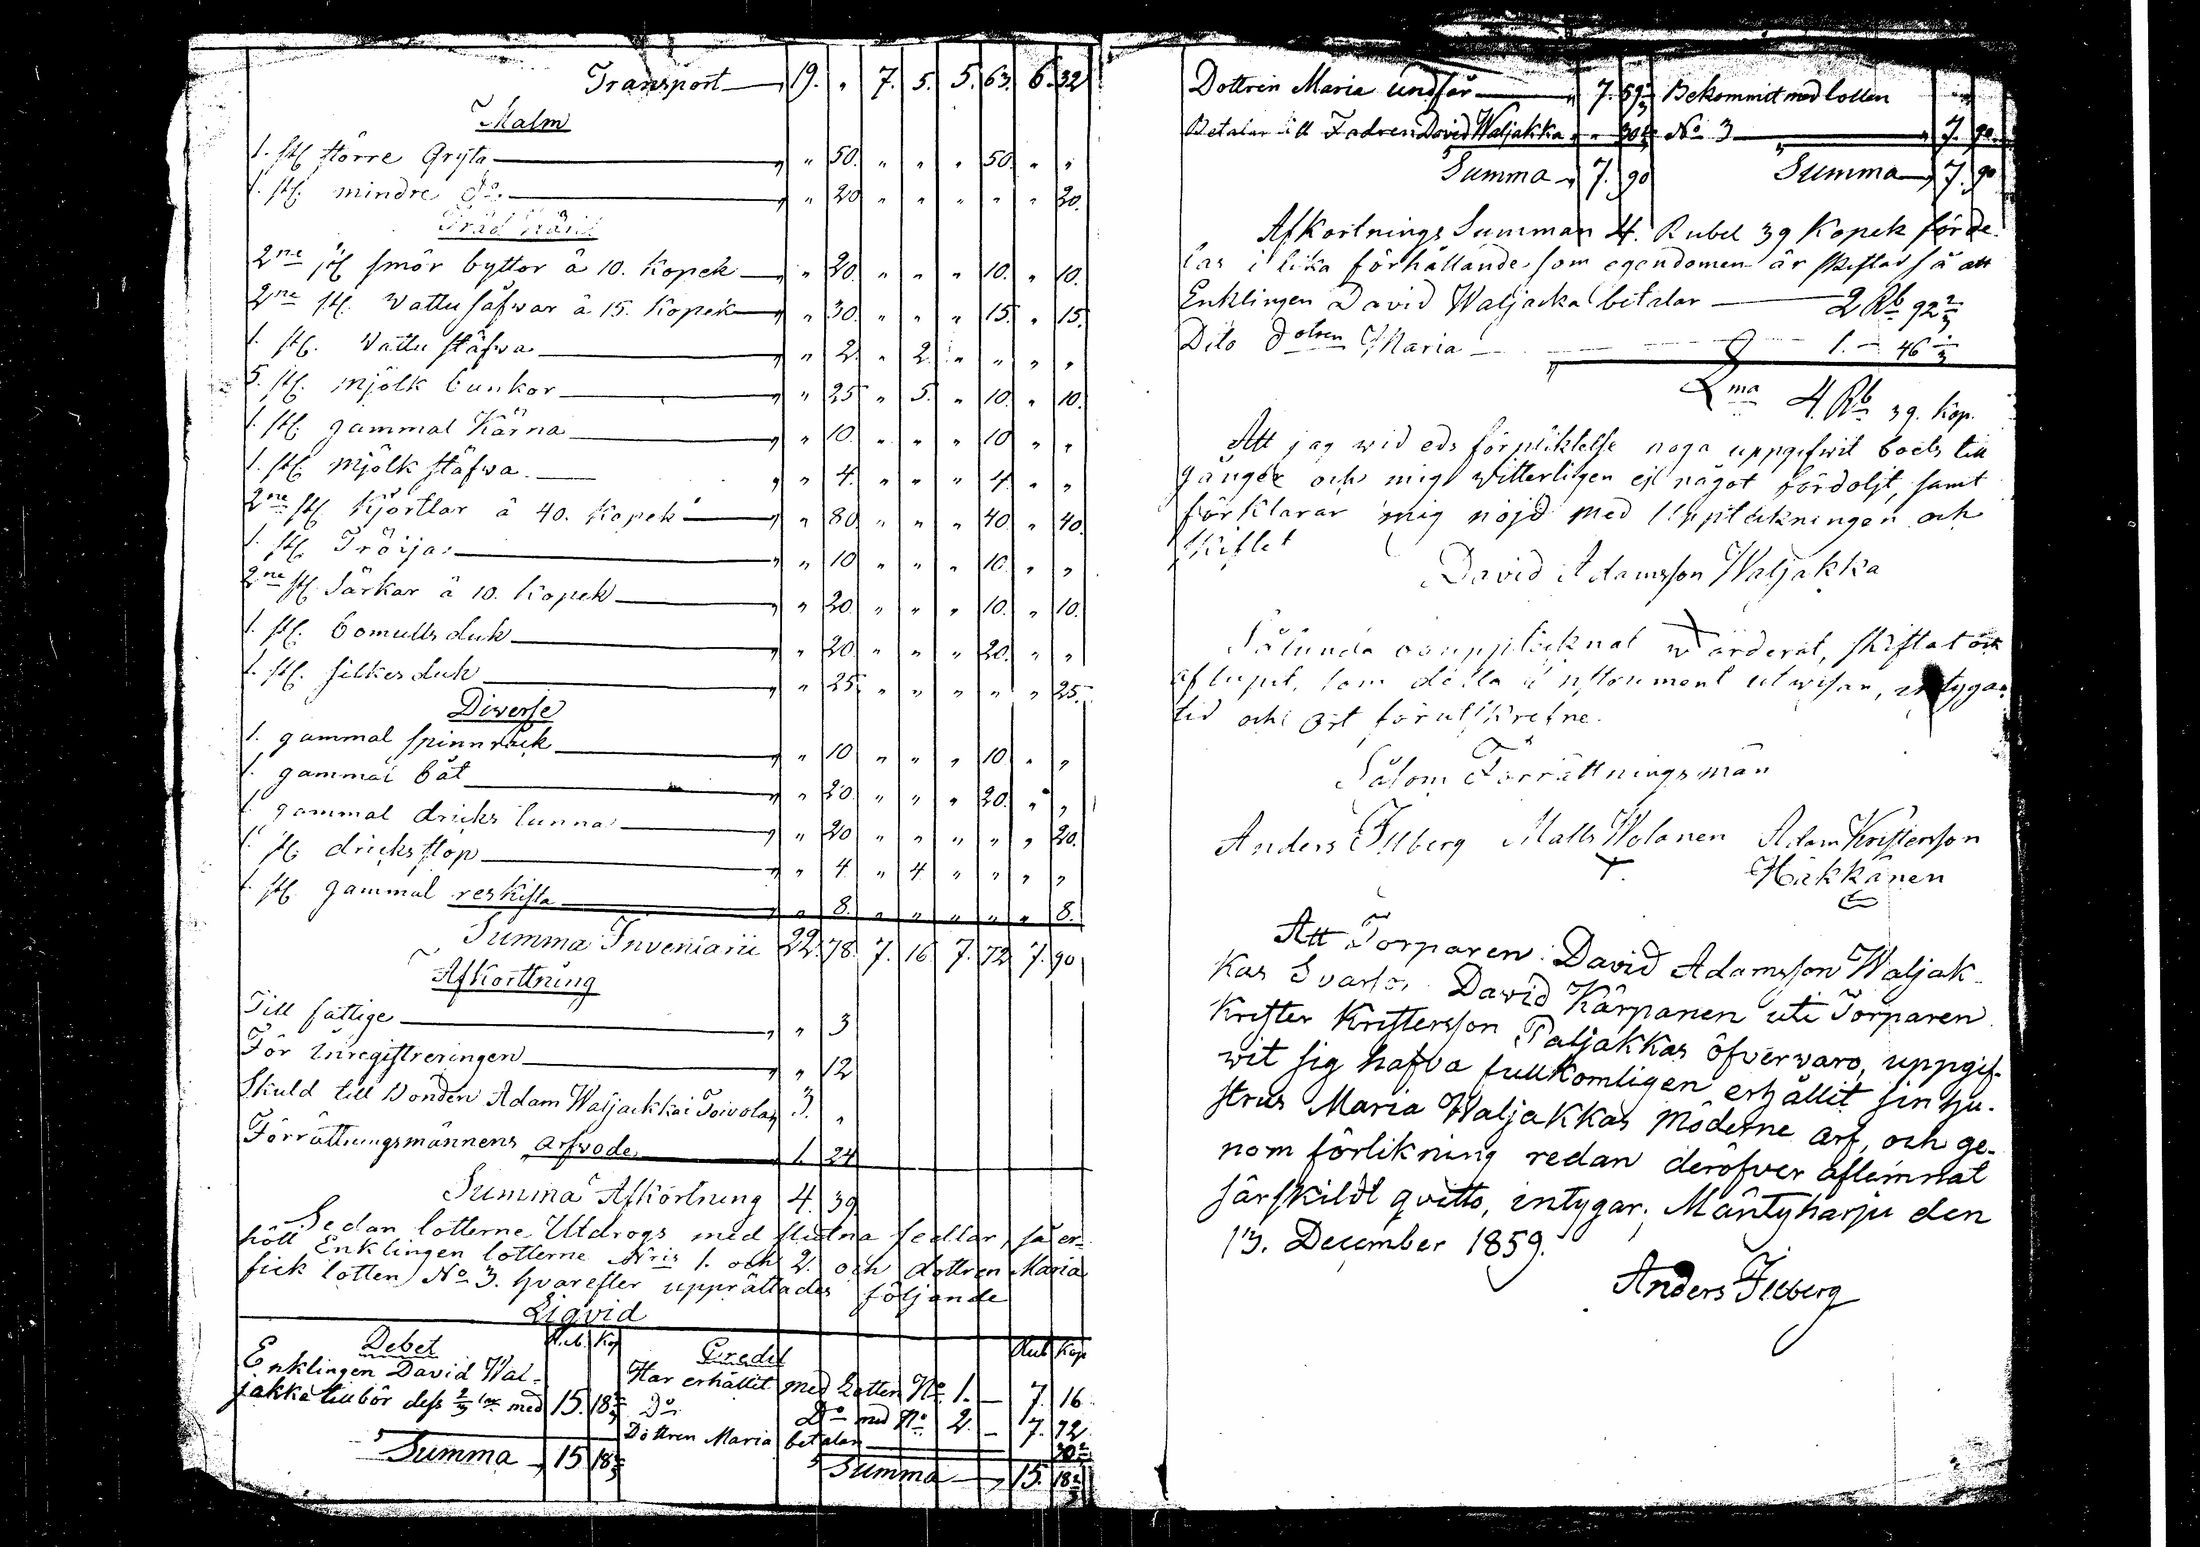 Transport 19. " 7. 5. 5. 63. 6. 32
Malm
1. st. större Gryta " 50. " " " 50. " "
1. st. mindre do " 20 " " " " " 20.
Träd Käril
2ne st smör byttor à 10. Kopek " 20. " " " 10. " 10.
2ne st. Vattu såfwar à 15. Kopek " 30. " " " 15. " 15.
1. st. Vattu stäfwa " 2. " 2. " " " "
5. st. mjölk bunkor " 25 " 5. " 10. " 10.
1. st. gammal Kärna " 10. " " " 10 " "
1. st. Mjölk stäfwa " 4. " " " 4. " "
2ne st. Kjortlar à 40. Kopek " 80. " " " 40 " 40.
1. st. Tröija " 10 " " " 10. " "
2ne st. Särkar à 10. Kopek " 20. " " " 10. " 10.
1. st. bomulls duk " 20. " " " 20. " "
1. st. silkes duk " 25. " " " " " 25.
Diverse
1. gammal spinnråck " 10 " " " 10. " "
1. gammal båt " 20. " " " 20. " "
1. gammal dricks tunna " 20 " " " " " 20.
1. st. dricks stop " 4. " 4. " " " "
1. st. gammal reskista " 8. " " " " " 8.
Summa Inventarii 22. 78. 7. 16 7. 72 7. 90
Afkorttning
Till fattige " 3
För Inregistreringen " 12
Skuld till Bonden Adam Waljackka i Toivola 3. "
Förrättningsmännens arfvode 1. 24
Summa Afkortning 4. 39
Sedan lotterne Utdrogs med slutna sedlar, så er-
höll Enklingen lotterne Nris 1. och 2. och dottren Maria
fick lotten No 3. hvarefter upprättades följande
Liqvid
Debet Rub. Kop Credit Rub Kop
Enklingen David Wal-
jakka tillbör dess 2/3 med 15. 18 2/3
Har erhållit med Lotten No 1. — 7. 16
Do Do med No 2. — 7. 72
Dottren Maria betalar 30 2/3
Summa 15 18 2/3 Summa 15. 18 2/3
Dottren Maria undfår 7. 59 1/3 Bekommit med lotten
Betalar till Fadren David Waljakka " 30 2/3 No 3 7. 90.
Summa 7. 90 Summa 7. 90
Afkortnings Summan 4. Rubel 39 Kopek förde-
las i lika förhållande som egendomen är skiftad så att
Enklingen David Waljacka betalar — 2 Rb 92 2/3
Dito dottren Maria — 1. — 46 1/3
Sma 4 Rb 39. Kop.
Att jag wid eds förpliktelse noga uppgifwit boets till
gångar och mig vitterligen ej något fördoljt, samt
förklarar mig nöjd med Uppteckningen och
skiftet
David Adamsson Waljakka
Sålunda wara upptecknat wärderat, skiftat och
aflupit, som detta instrument utwisar, intygar
tid och ort förutskrefne.
Såsom Förrättningsmän
Anders Filberg Matts Wolanen Adam Kristersson
Häkkänen
Att Torparen David Adamsson Waljak-
kas Svärson David Kärpänen uti Torparen
Krister Kristersson Paljakkas öfvervaro, uppgif-
wit sig hafva fullkomligen erhållit sin hu-
strus Maria Waljakkas Möderne arf, och ge-
nom förlikning redan deröfver aflemnat
särskildt qvitto, intygar; Mäntyharju den
13. December 1859.
Anders Filberg